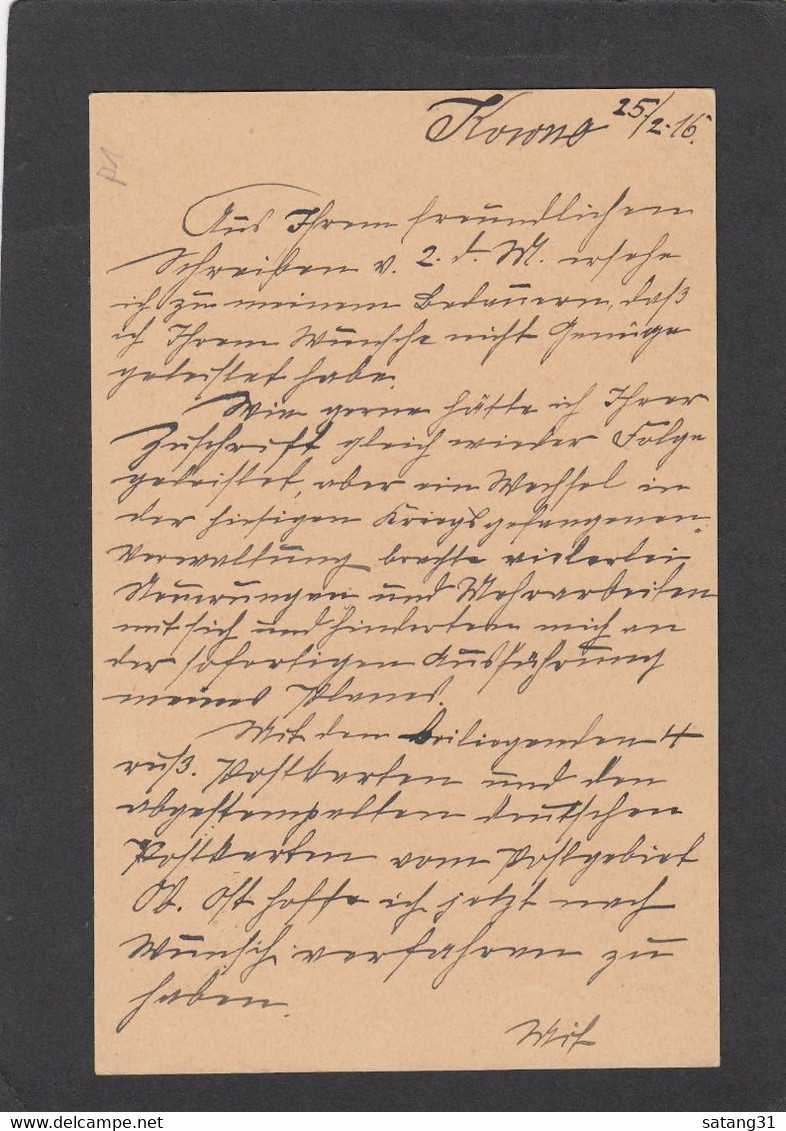 Kowno 25/2.16.
p1
Aus Ihrem freundlichen
Schreiben v. 2. d. M. ersehe
ich zu meinem Bedauern, daß
ich Ihrem Wunsche nicht Genüge
geleistet habe.
Wie gerne hätte ich Ihrer
Zuschrift gleich wieder Folge
geleistet, aber ein Wechsel in
der hiesigen Kriegsgefangenen-
Verwaltung brachte vielerlei
Neuerungen und Mehrarbeiten
mit sich und hinderten mich an
der sofortigen Ausführung
meines Planes.
Mit den beiliegenden 4
ruß. Postkarten und den
abgestempelten deutschen
Postkarten vom Postgebiet
Ob. Ost hoffe ich jetzt nach
Wunsch verfahren zu
haben.
Mit
delcampe.net
satang31